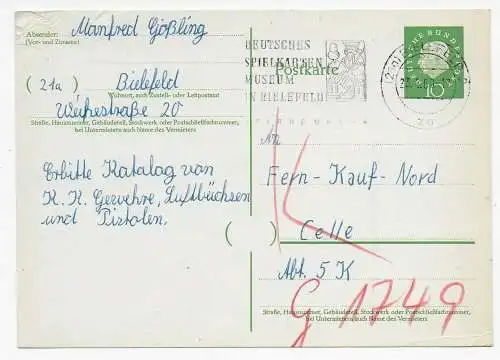 Absender: Manfred Gößling
(Vor- und Zuname)
(21a) Bielefeld
Wohnort, auch Zustell- oder Leitpostamt
Weihestraße 20
Straße, Hausnummer, Gebäudeteil, Stockwerk oder Postschließfachnummer,
bei Untermietern auch Name des Vermieters
Erbitte Katalag von
K. K. Gewehre, Luftbüchsen
und Pistolen.
DEUTSCHES
SPIELKARTEN
MUSEUM
IN BIELEFELD
Postkarte
DEUTSCHE BUNDESPOST
10
An
Fern-Kauf-Nord
( ) Celle
Abt. 5 K
Straße, Hausnummer, Gebäudeteil, Stockwerk oder Postschließfachnummer,
bei Untermietern auch Name des Vermieters
G 1749